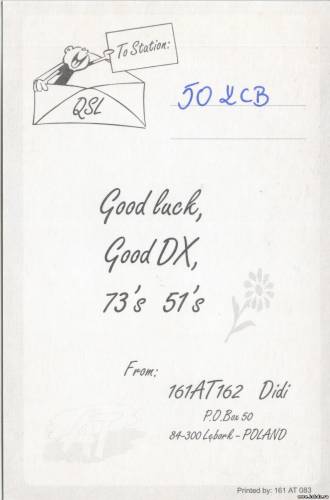 To Station:
QSL
50 XCB
Good luck,
Good DX,
73's 51's
From:
161AT162 Didi
P.O.Box 50
84-300 Lębork - POLAND
Printed by: 161 AT 083